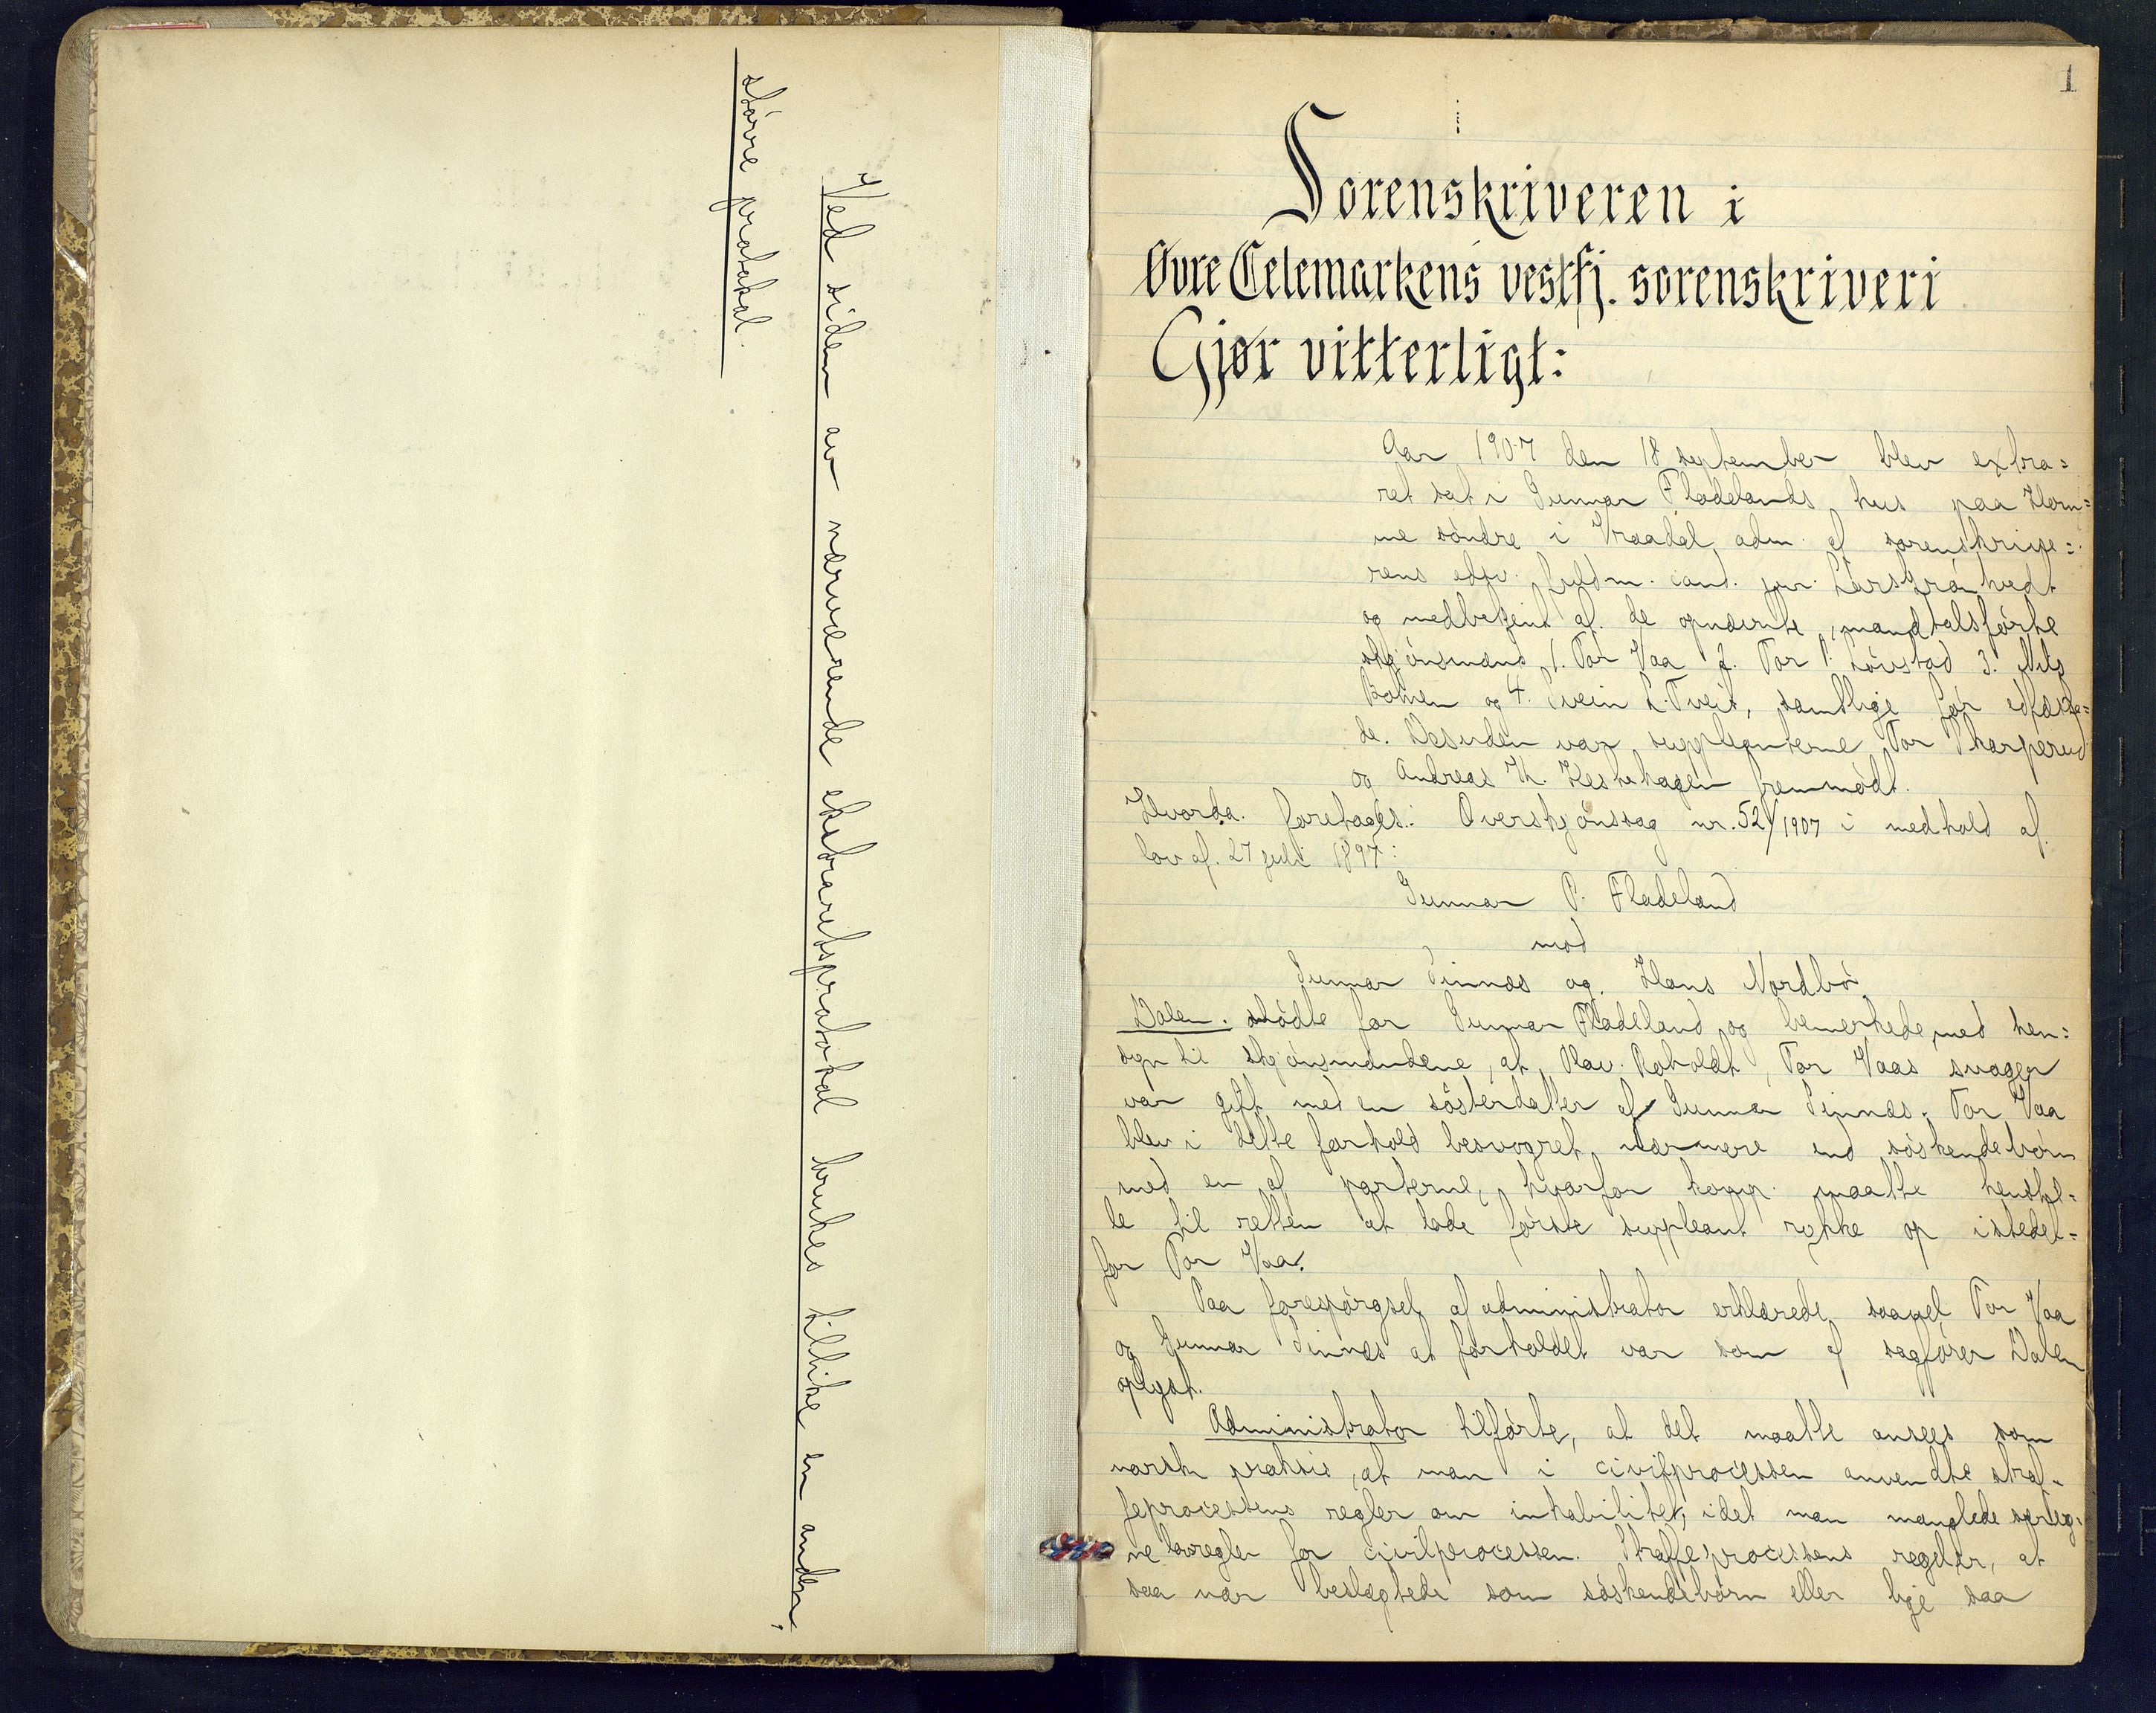 Ved siden av nærværende ekstraretsprotokol brukes tillike en anden,
større protokol.
1
Sorenskriveren i
Øvre Telemarkens vestfj. sorenskriveri
Gjør vitterligt:
Aar 1907 den 18 september blev extra=
ret sat i Gunnar Fladelands hus paa Hom=
me söndre i Vraadal, adm. af sorenskrive=
rens edsv. fuldm. cand. jur. Lars Grönhvedt
og medbetjent af de opnævnte, mandtalsførte
skjönsmænd 1. Tor Vaa 2. Tor P. Lövstad 3. Nils
Bomen og 4. Svein L. Tveit, samtlige før edfæste=
de. Desuden var suppleanterne Tor Skarperud
og Andreas K. Heskehagen fremmödt.
Hvorda foretoges: Overskjönssag nr. 52/1907 i medhold af
lov af 27 juli 1897:
Gunnar P. Fladeland
mod
Gunnar Tinnes og Hans Nordbö.
Dalen. mödte for Gunnar Fladeland og bemerkede med hen=
syn til skjönsmændene, at Olav Roholdt, Tor Vaas svager
var gift med en sösterdatter af Gunnar Tinnes. Tor Vaa
blev i dette forhold besvogret nærmere end söskendebörn
med en af parterne, hvorfor komp. maatte henstil=
le til retten at lade förste suppleant rykke op istedet=
for Tor Vaa.
Paa forespörgsel af administrator erklærede saavel Tor Vaa
og Gunnar Tinnes at forholdet var som af sagförer Dalen
oplyst.
Administrator tilförte, at det maatte ansees som
norsk praksis, at man i civilprocessen anvendte straf=
feprocessens regler om inhabilitet, idet man manglede særeg=
ne lovregler for civilprocessen. Straffeprocessens regeler, at
saa nær beslægtede som söskendebörn eller lige saa